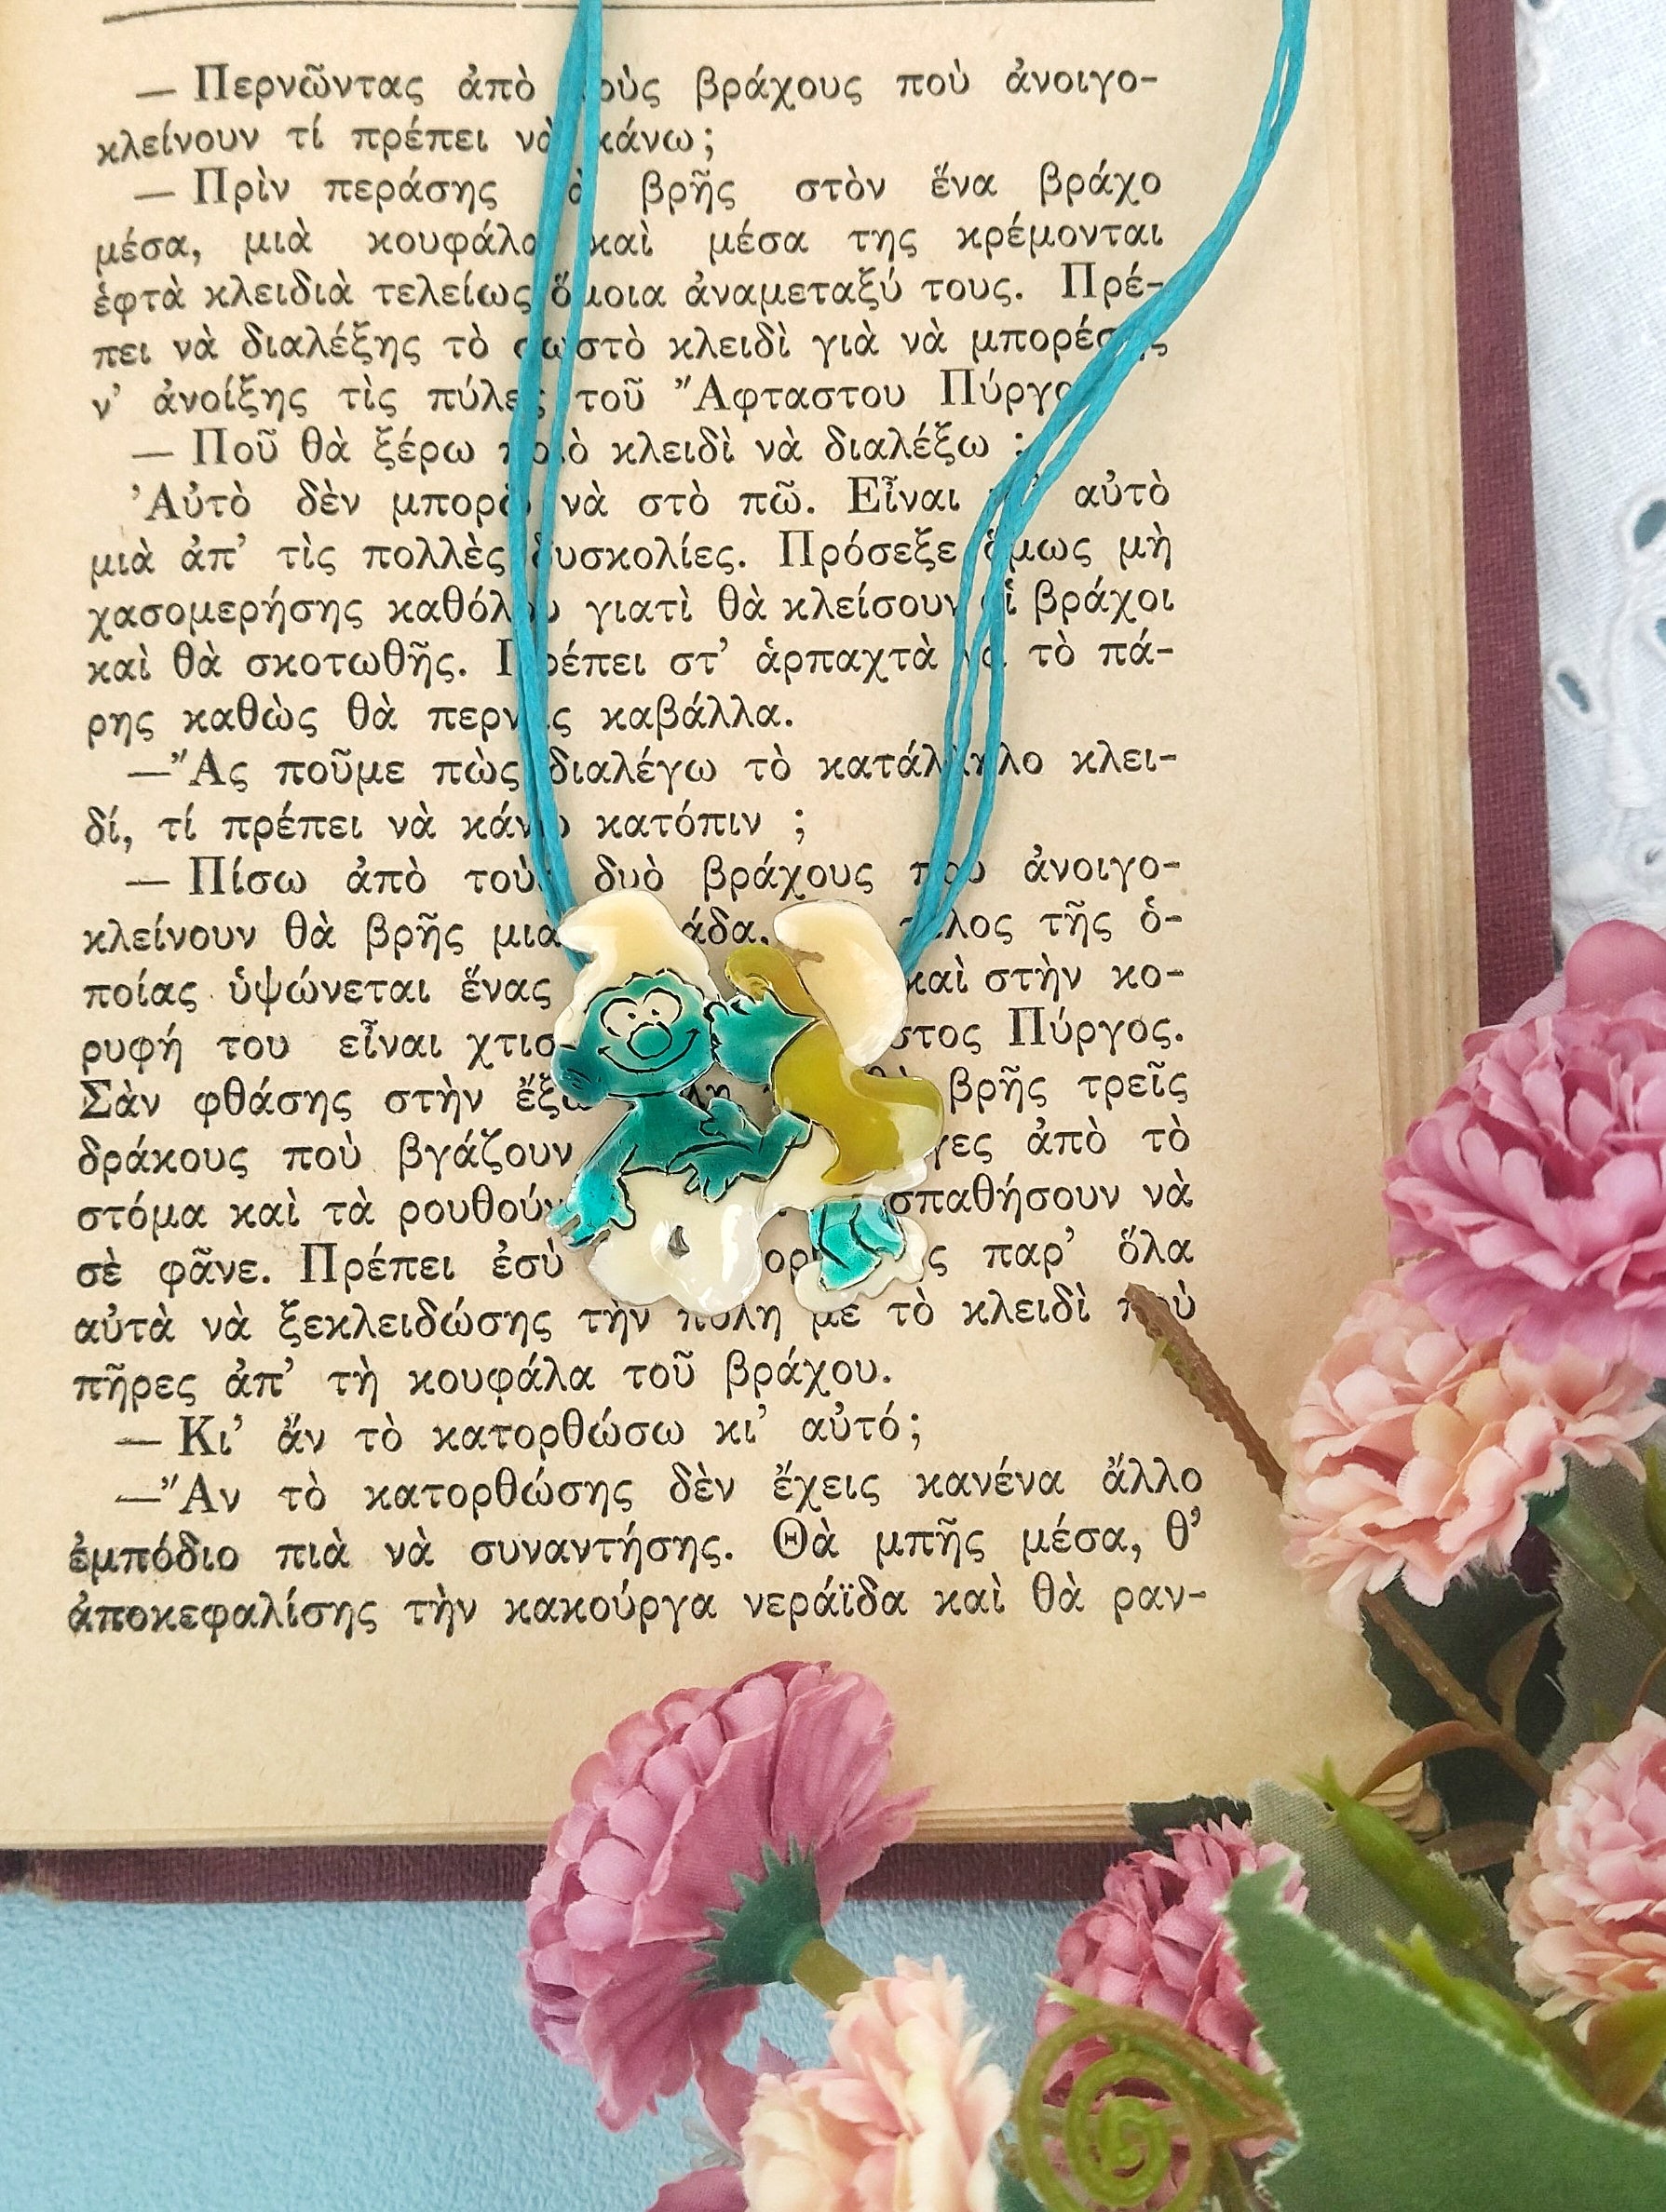 — Περνῶντας ἀπὸ τοὺς βράχους ποὺ ἀνοιγο-
κλείνουν τί πρέπει νὰ κάνω;
— Πρὶν περάσης θὰ βρῆς στὸν ἕνα βράχο
μέσα, μιὰ κουφάλα καὶ μέσα της κρέμονται
ἑφτὰ κλειδιὰ τελείως ὅμοια ἀναμεταξύ τους. Πρέ-
πει νὰ διαλέξης τὸ σωστὸ κλειδὶ γιὰ νὰ μπορέσης
ν' ἀνοίξης τὶς πύλες τοῦ Ἄφταστου Πύργου
— Ποῦ θὰ ξέρω ποιὸ κλειδὶ νὰ διαλέξω ;
'Αὐτὸ δὲν μπορῶ νὰ στὸ πῶ. Εἶναι αὐτὸ
μιὰ ἀπ' τὶς πολλὲς δυσκολίες. Πρόσεξε ὅμως μὴ
χασομερήσης καθόλου γιατὶ θὰ κλείσουν οἱ βράχοι
καὶ θὰ σκοτωθῆς. Πρέπει στ' ἁρπαχτὰ νὰ τὸ πά-
ρης καθὼς θὰ περνᾶς καβάλλα.
—Ἂς ποῦμε πὼς διαλέγω τὸ κατάλληλο κλει-
δί, τί πρέπει νὰ κάνω κατόπιν ;
— Πίσω ἀπὸ τοὺς δυὸ βράχους ποὺ ἀνοιγο-
κλείνουν θὰ βρῆς μιὰ τέλος τῆς ὁ-
ποίας ὑψώνεται ἕνας καὶ στὴν κο-
ρυφή του εἶναι Πύργος.
Σὰν φθάσης στὴν ἔξω θὰ βρῆς τρεῖς
δράκους ποὺ βγάζουν ἀπὸ τὸ
στόμα καὶ τὰ ρουθούνια σπαθήσουν νὰ
σὲ φᾶνε. Πρέπει ἐσὺ παρ' ὅλα
αὐτὰ νὰ ξεκλειδώσης τὴν πύλη μὲ τὸ κλειδὶ ποὺ
πῆρες ἀπ' τὴ κουφάλα τοῦ βράχου.
— Κι' ἄν τὸ κατορθώσω κι' αὐτό;
—Ἂν τὸ κατορθώσης δὲν ἔχεις κανένα ἄλλο
ἐμπόδιο πιὰ νὰ συναντήσης. Θὰ μπῆς μέσα, θ'
ἀποκεφαλίσης τὴν κακούργα νεράϊδα καὶ θὰ ραν-